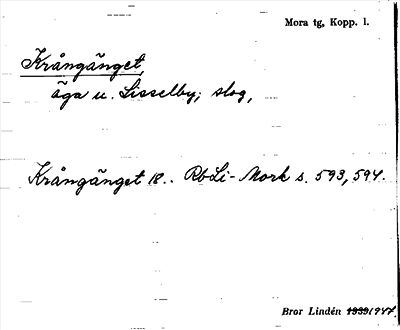 Mora tg, Kopp. l.
Krångänget,
äga u. Lisselby; slog,
Krångänget 18.. Rb Li-Mork s. 593, 594.
Bror Lindén 1939 1947.